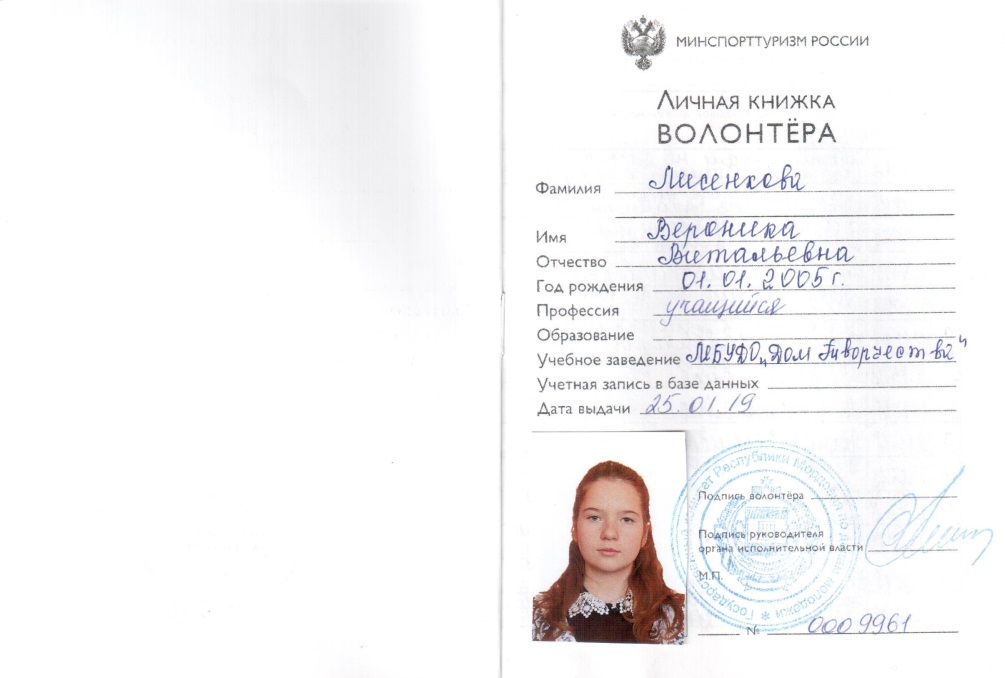 МИНСПОРТТУРИЗМ РОССИИ
ЛИЧНАЯ КНИЖКА
ВОЛОНТЁРА
Фамилия Лисенкова
Имя Вероника
Отчество Витальевна
Год рождения 01.01.2005 г.
Профессия учащийся
Образование
Учебное заведение МБУДО „Дом творчества"
Учетная запись в базе данных
Дата выдачи 25.01.19
Подпись волонтёра
Подпись руководителя
органа исполнительной власти
М.П.
№ 0009961
Государственный комитет Республики Мордовия по делам молодежи